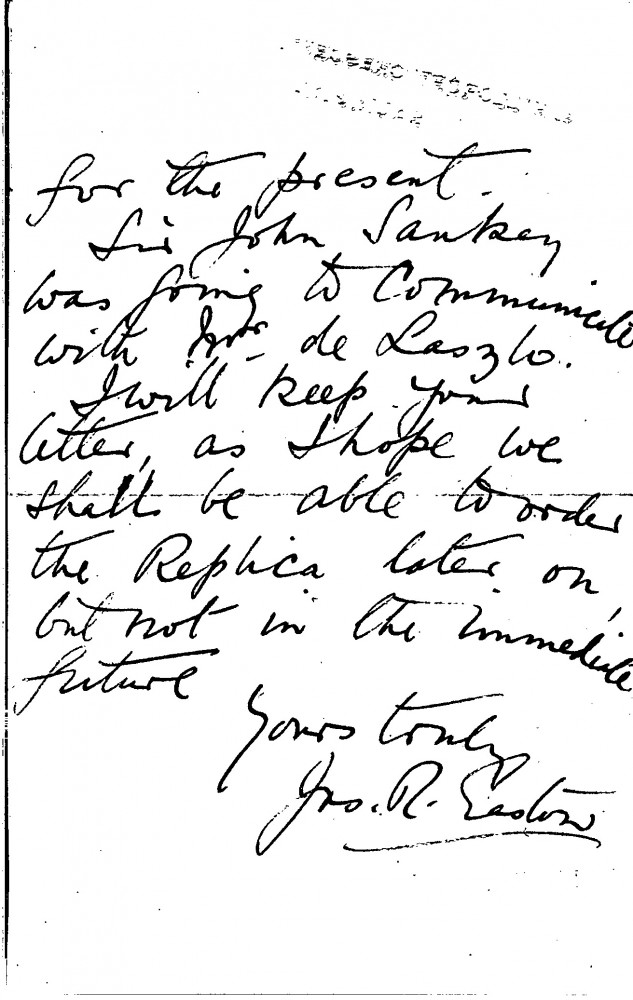 for the present.
Sir John Sankey
was going to Communicate
with Mrs. de Laszlo.
I will keep your
letter, as I hope we
shall be able to order
the Replica later on,
but not in the immediate
future
Yours truly
Jas. R. Easton